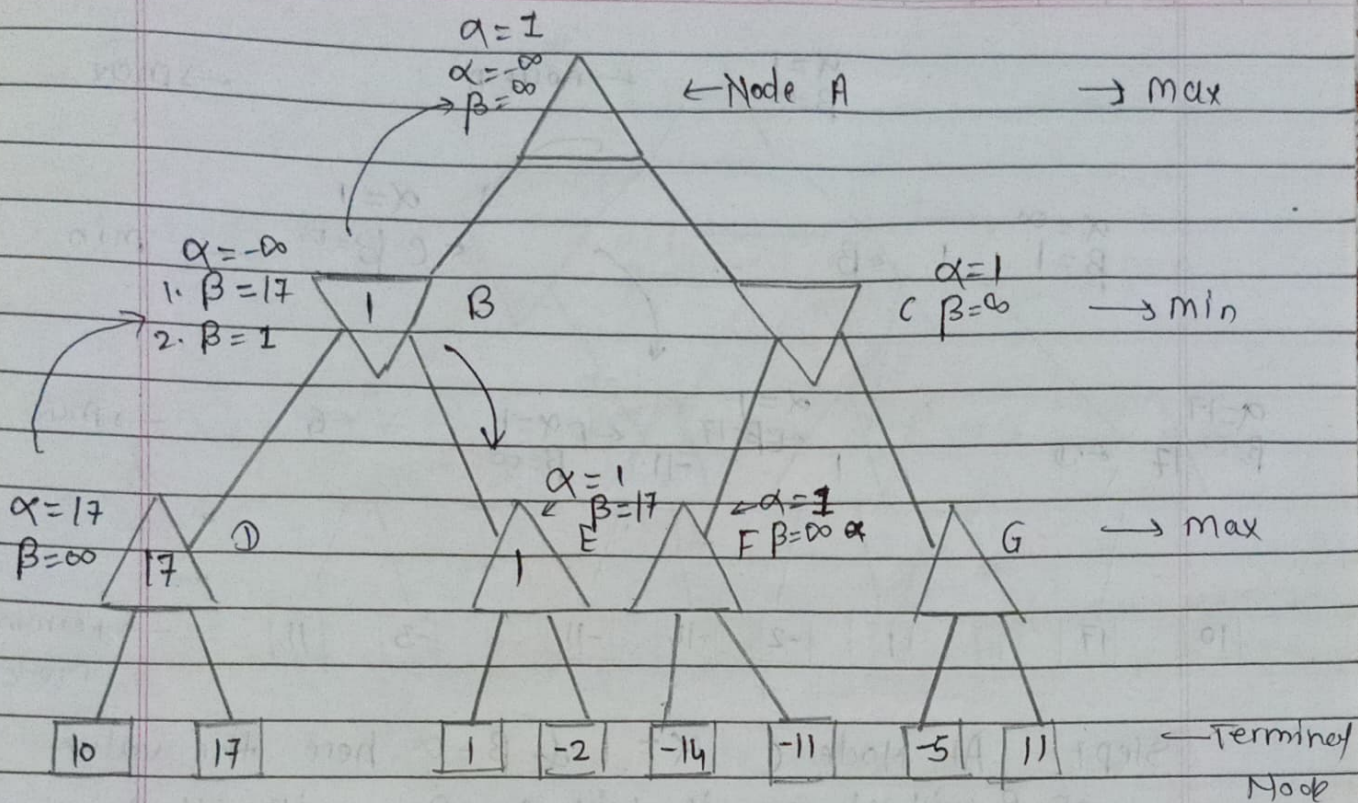 α = 1
α = -∞
β = ∞
← Node A → max
α = -∞
1. β = 17
2. β = 1
1 B
α = 1
C β = ∞ → min
α = 17
β = ∞
17 D
α = 1
β = 17
E
1
← α = 1
F β = ∞ α
G → max
10 17 1 -2 -14 -11 -5 11 ← Terminal
Node